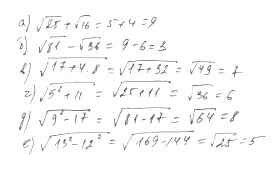 а) √25 + √16 = 5 + 4 = 9
б) √81 - √36 = 9 - 6 = 3
в) √17 + 4.8 = √17 + 32 = √49 = 7
г) √5² + 11 = √25 + 11 = √36 = 6
д) √9² - 17 = √81 - 17 = √64 = 8
е) √13² - 12² = √169 - 144 = √25 = 5